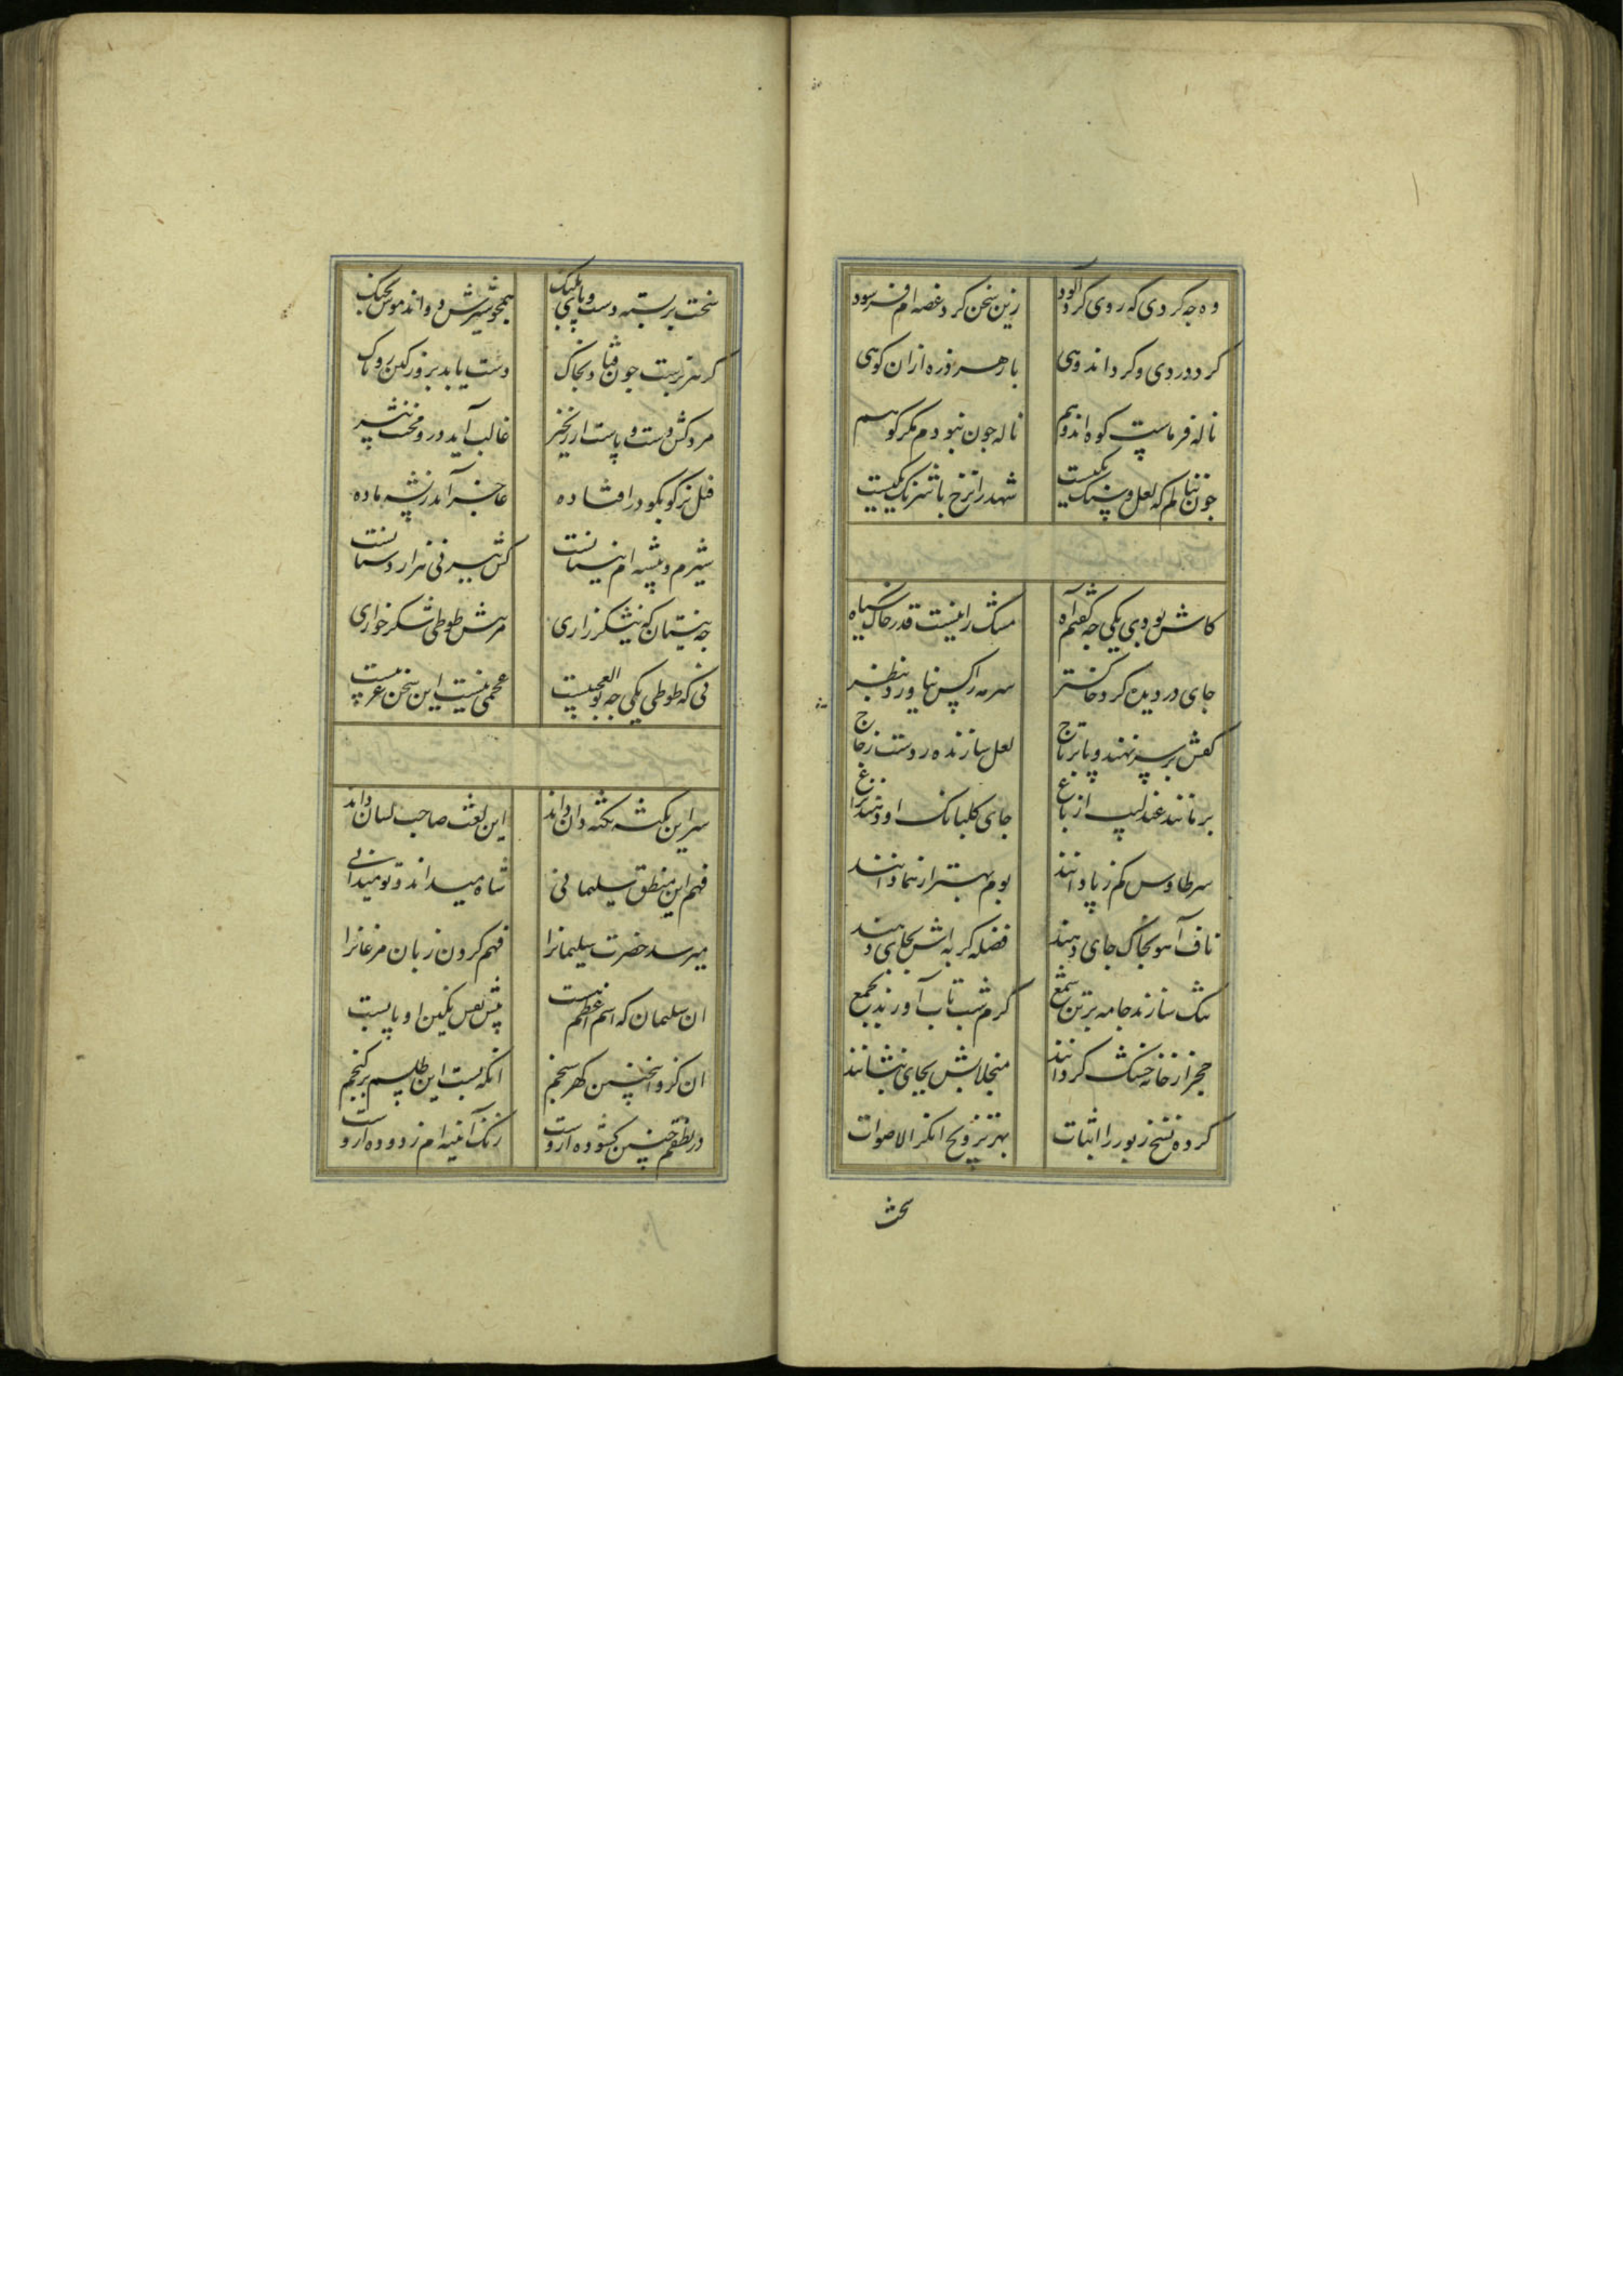 وه چه کردی که روی کرد آلود زین سخن کرد غصه ام فرسود
کرد دردی و کرد اندوهی بار هر ذره ازان کوهی
ناله فرماست کوه اندوهم ناله چون نبودم مکر کوهم
چون ننالم که لعل و سنک یکیست شهد را نرخ با شرنک یکیست
کاش بودی یکی چه کفتم آه مشک را نیست قدر خاک سیاه
جای در دیده کرد خاکستر سرمه را کس نیاورد بنظر
کفش بر سر نهند و پا بر تاج لعل سازنده رد دست زجاج
برمانند عندلیب از باغ جای کلبانک او دهند بزاغ
سر طاوس کم ز پا دانند بوم بهتر از هما دانند
ناف آهو بخاک جای دهند فضله کربه اش بجای دهند
تنک سازند جامه بر تن شمع کرم شب تاب آورند بجمع
از خانه خشک کردانند منجلابش بجای بنشانند
کرده نسخ زبور را اثبات بهر ترویج انکر الاصوات
سخت
سخت بربسته دست و پای پلنک همچو شیرش دواند موش بجنک
کر هژبرست چون فتاد بخاک دست یابد بزور کمین
مرد کش دست و پاست در زنجیر غالب آید درو مخنث پیر
فیل نر کو بکو درافتاده عاجز آمد ز پشه ماده
شیرم و بیشه ام نیستانست کش بهر نی هزار دستانست
چه نیستان که نیشکر زاری هر نیش طوطی شکر خواری
نی که طوطی یکی چه بوالعجبیست عجمی نیست این سخن عربیست
سر این نکته نکته دان داند این لغت صاحب لسان داند
فهم این منطق سلیمانی شاه میداند و تو میدانی
میرسد حضرت سلیمانرا فهم کردن زبان مرغانرا
ان سلیمان که اسم اعظم هست پیش نقش نکین او پا بست
ان کزو اینچنین کهر سنجم انکه بست این طلسم بر کنجم
در نطقم چنین کشوده ازوست زنک آئینه ام زدوده ازوست